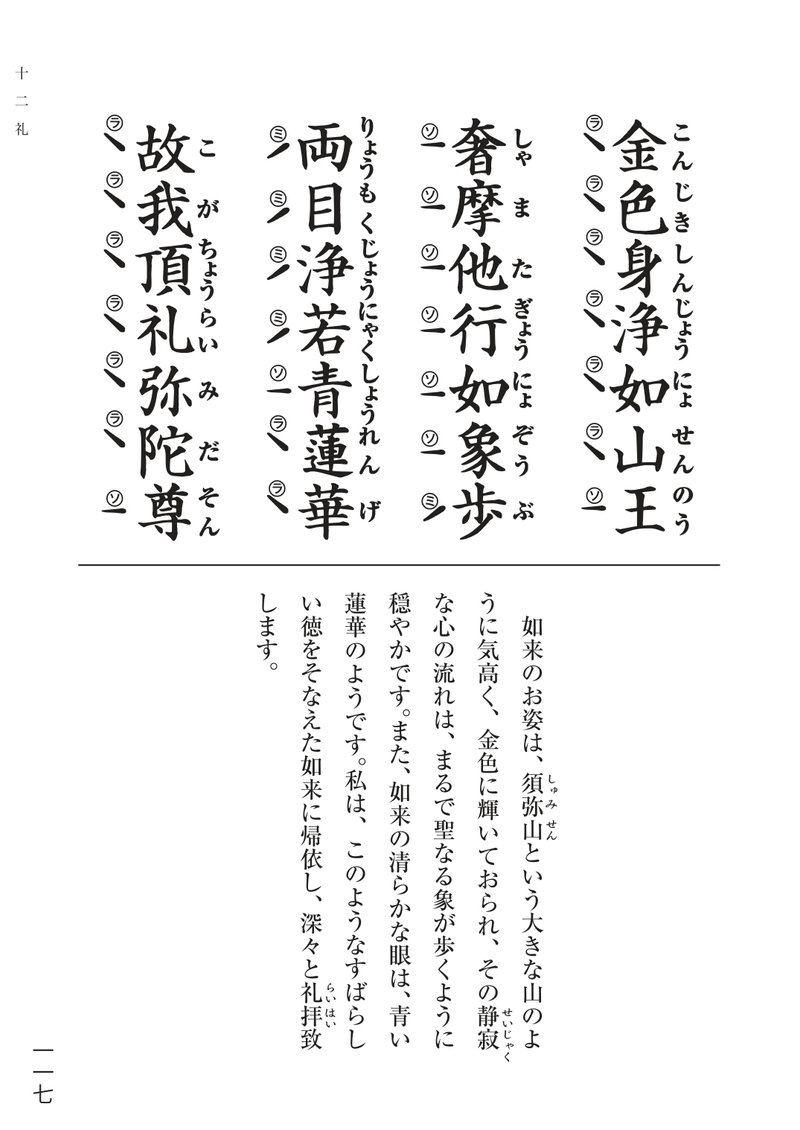 こんじきしんじょうにょせんのう
金色身浄如山王
㋶㋶㋶㋶㋶㋶㋞
しゃまたぎょうにょぞうぶ
奢摩他行如象歩
㋞㋞㋞㋞㋞㋞㋯
りょうもくじょうにゃくしょうれんげ
両目浄若青蓮華
㋯㋯㋯㋯㋞㋶㋶
こがちょうらいみだそん
故我頂礼弥陀尊
㋶㋶㋶㋶㋶㋶㋞
しゅみせん
如来のお姿は、須弥山という大きな山のよ
うに気高く、金色に輝いておられ、その静寂
せいじゃく
な心の流れは、まるで聖なる象が歩くように
穏やかです。また、如来の清らかな眼は、青い
蓮華のようです。私は、このようなすばらし
らいはい
い徳をそなえた如来に帰依し、深々と礼拝致
します。
十二礼
一一七